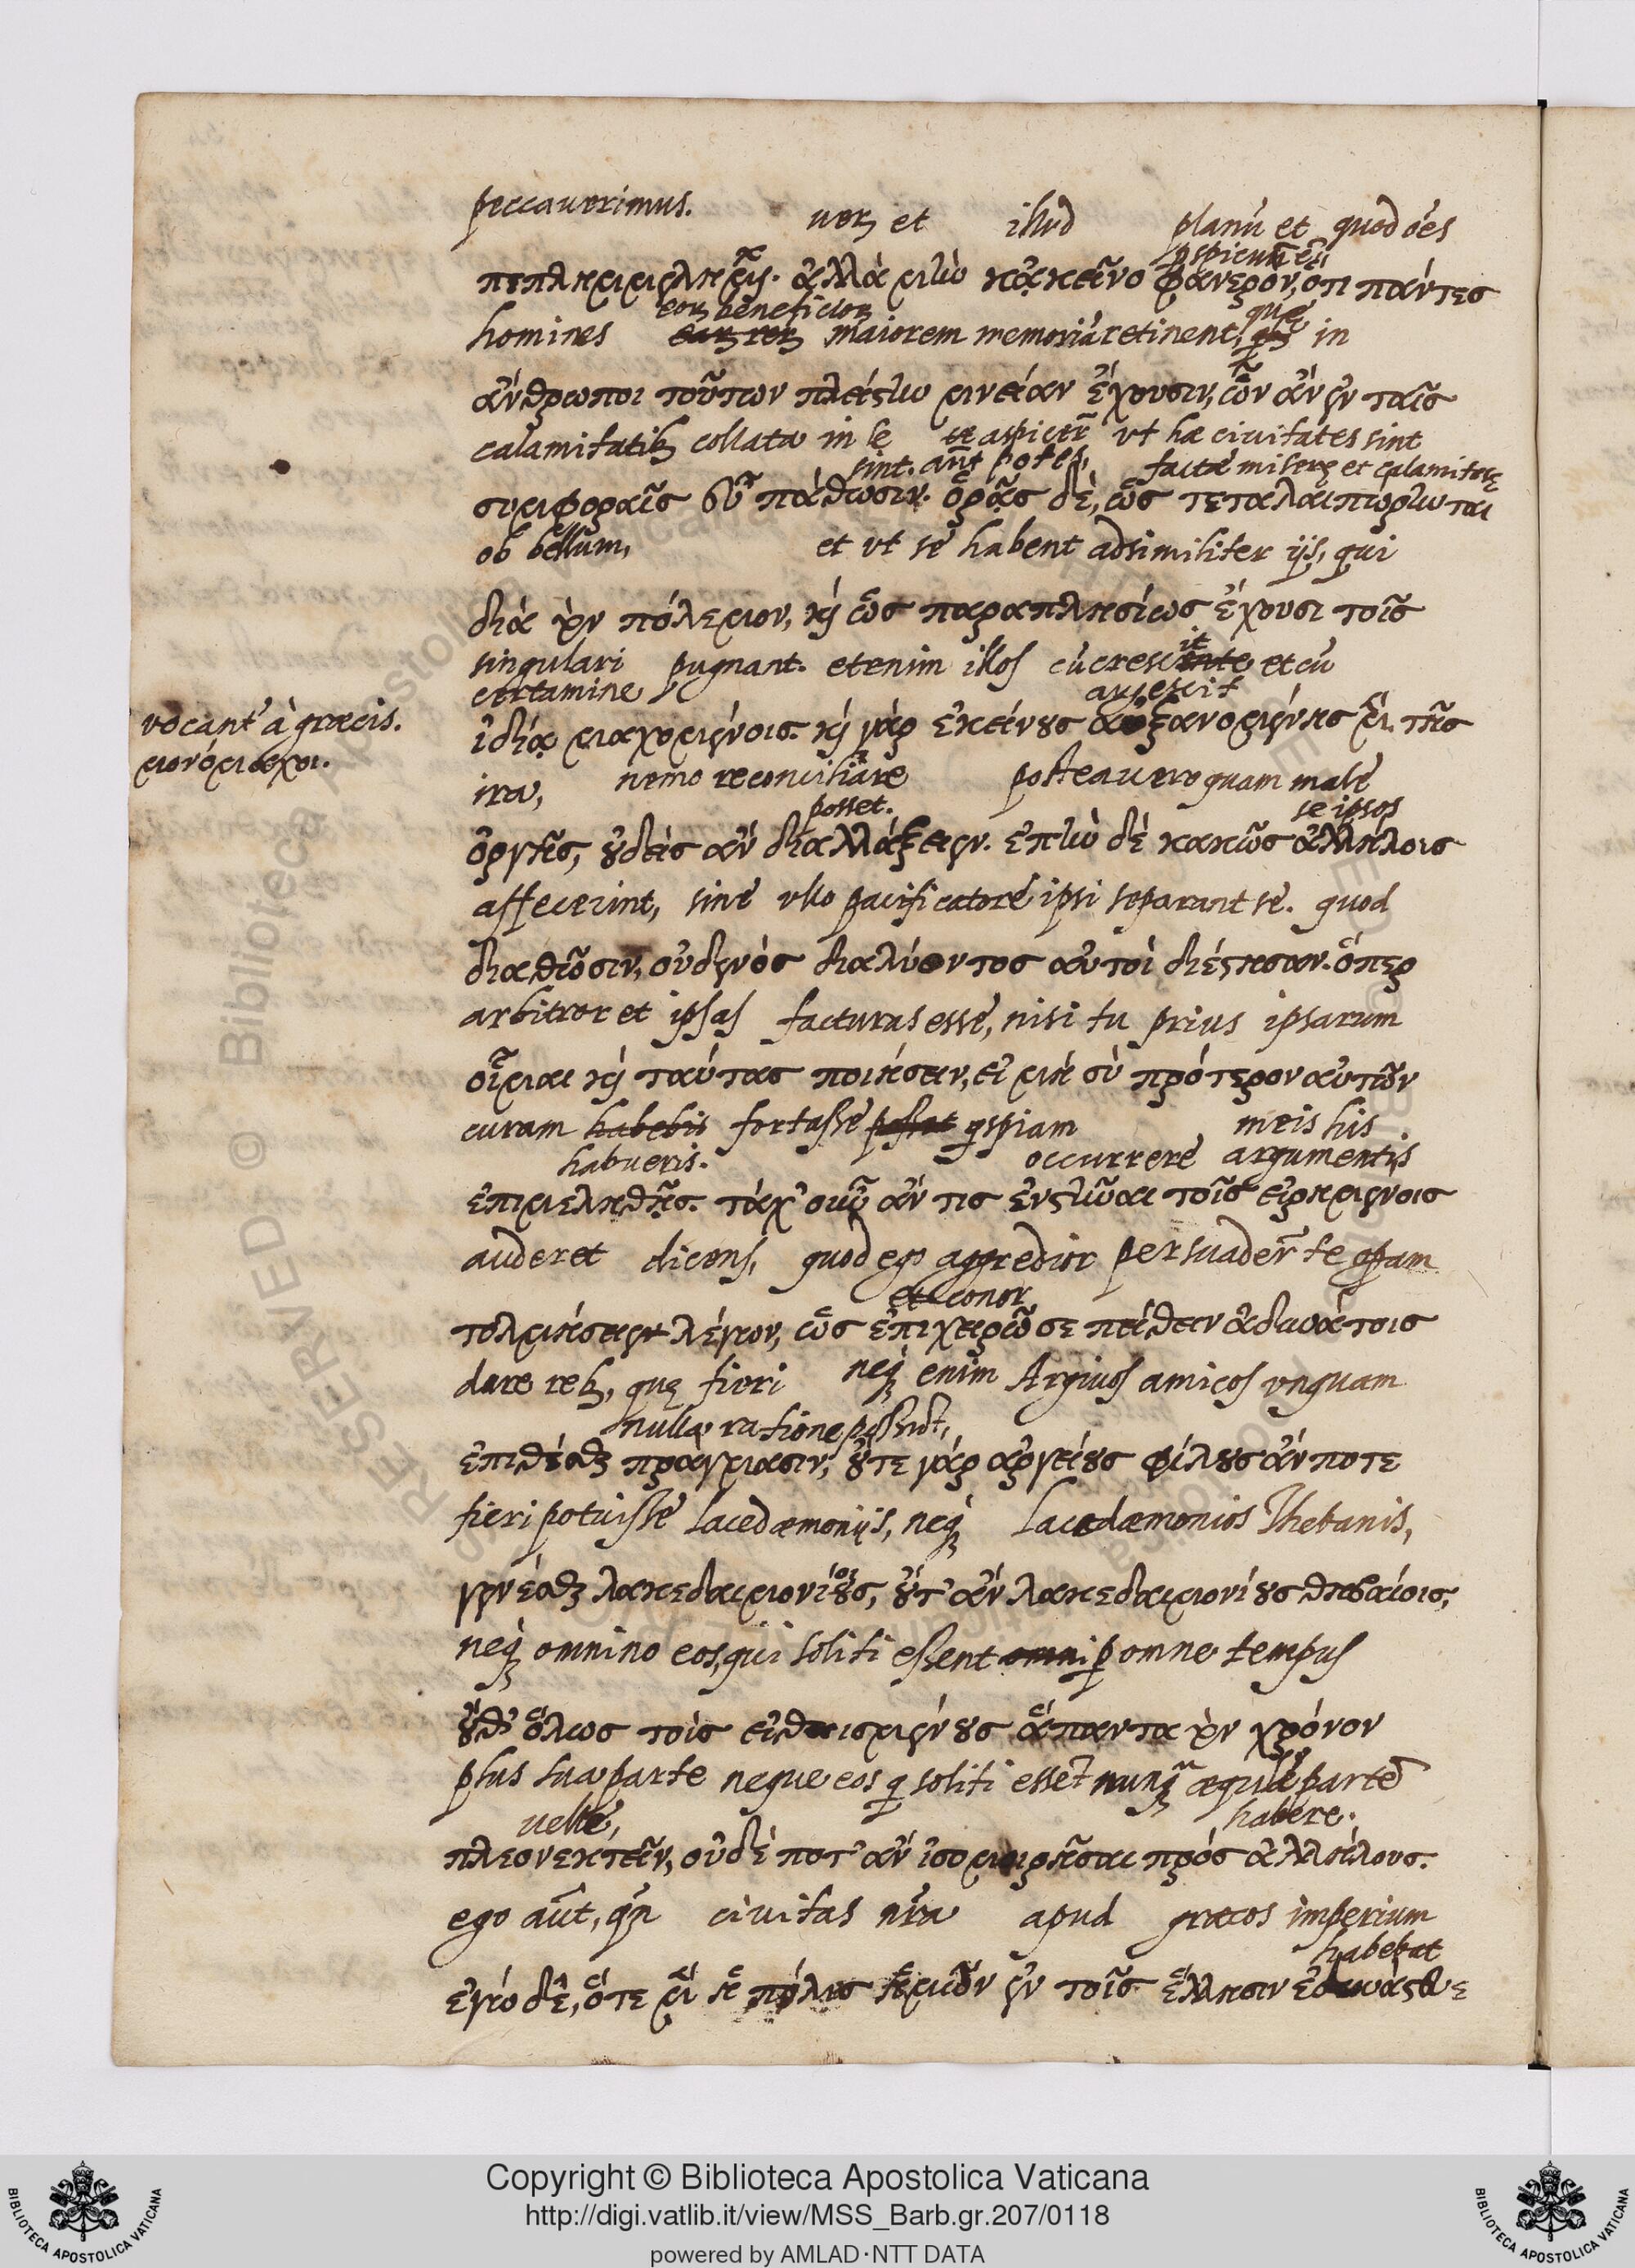 peccauerimus. uerꝝ et illud planũ et quod ões
pspicuũ ẽ,
πεπλημμελημέναις. ἀλλὰ μὴν κἀκεῖνο φανερόν, ὅτι πάντες
eorꝝ beneficiorꝝ quæ
homines earꝝ rerꝝ maiorem memoriã retinent, in
ἄνθρωποι τούτων πλείστην μνείαν ἔχουσιν, ὧν ἂν ἐν ταῖς
calamitatibꝫ collata in se aspicer̃ vt hæ ciuitates sint
sint. aut̃ potes, factæ miserę et calamitosę
συμφοραῖς εὖ πάθωσιν. ὁρᾷς δὲ, ὡς τεταλαιπώρηνται
ob bellum, et vt se habent adsimiliter ijs, qui
διὰ τὸν πόλεμον, καὶ ὡς παραπλησίως ἔχουσι τοῖς
singulari pugnant. etenim illos cũ crescit et cũ
certamine augescit
vocant' à græcis.
μονόμαχοι.
ἰδίᾳ μαχομένοις. καὶ γὰρ ἐκείνους αὐξανομένης μὲν τῆς
ira, nemo reconciliare postea uero quam male
posset. se ipsos
ὀργῆς, οὐδεὶς ἂν διαλλάξειεν. ἐπὴν δὲ κακῶς ἀλλήλους
affecerint, sine vllo pacificatore ipsi separant se. quod
διαθῶσιν, οὐδενὸς διαλύοντος αὐτοὶ διέστησαν. ὅπερ
arbitror et ipsas facturas esse, nisi tu prius ipsarum
οἶμαι καὶ ταύτας ποιήσειν, εἰ μὴ σὺ πρότερον αὐτῶν
curam habebis fortasse posset qspiam meis his
habueris. occurrere argumentis
ἐπιμεληθῇς. τάχ' οὖν ἄν τις ἐνστῆναι τοῖς εἰρημένοις
auderet dicens, quod ego aggredior persuader̃ te operam
et conor
τολμήσειεν λέγων, ὡς ἐπιχειρῶ σε πείθειν ἀδυνάτοις
dare rebꝫ, quę fieri neqꝫ enim Argiuos amicos vnquam
nulla ratione possunt,
ἐπιθέσθαι πράγμασιν, οὔτε γὰρ ἀργείους φίλους ἄν ποτε
fieri potuisse Lacedæmonijs, neqꝫ Lacedæmonios Thebanis,
γενέσθαι λακεδαιμονίοις, οὔτ' ἂν λακεδαιμονίους θηβαίοις,
neqꝫ omnino eos, qui soliti essent omni p omne tempus
οὔθ' ὅλως τοὺς εἰθισμένους ἅπαντα τὸν χρόνον
plus sua parte neque eos q soliti essẽt nunq̃ æqua parte
uelle, habere.
πλεονεκτεῖν, οὐδέποτ' ἂν ἰσομοιρῆσαι πρὸς ἀλλήλους.
ego aut̃, qñ ciuitas nr̃a apud græcos imperium
habebat
ἐγὼ δὲ, ὅτε μὲν ἡ πόλις ἡμῶν ἐν τοῖς ἕλλησιν ἐδυνάστευε
Copyright © Biblioteca Apostolica Vaticana
http://digi.vatlib.it/view/MSS_Barb.gr.207/0118
powered by AMLAD·NTT DATA